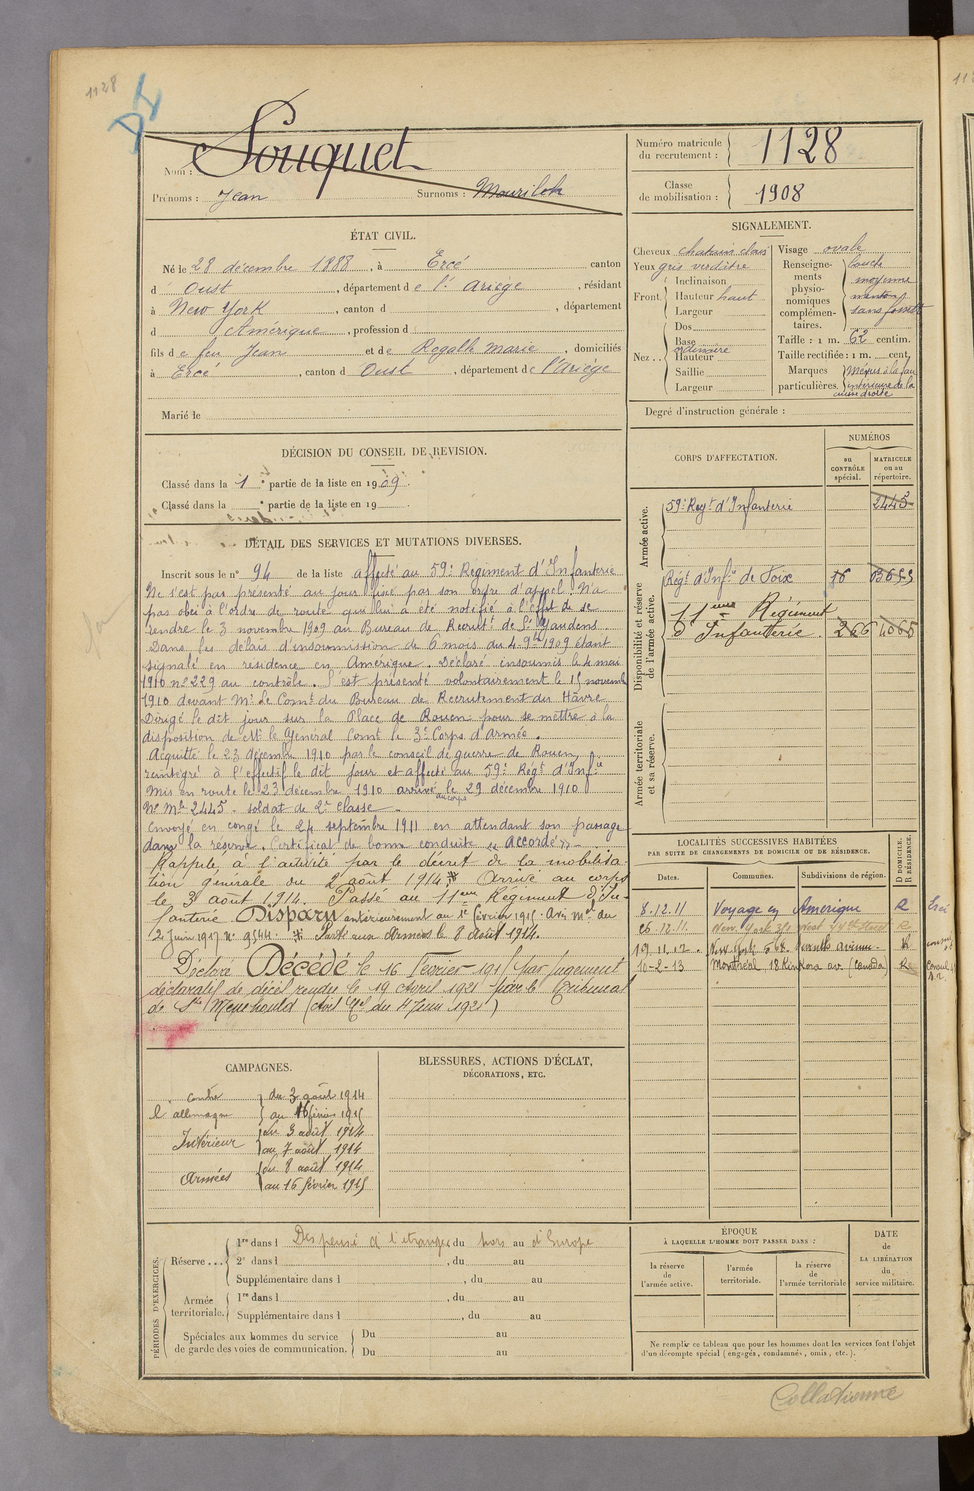 1128
Nom : Souquet
Prénoms : Jean Surnoms : Mourilok
Numéro matricule du recrutement : 1128
Classe de mobilisation : 1908
ÉTAT CIVIL.
Né le 28 décembre 1888, à Ercé canton
d' Oust, département de l'Ariège, résidant
à New York, canton d , département
d Amérique, profession d
fils de feu Jean et de Rogalle Marie, domiciliés
à Ercé, canton d Oust, département de l'Ariège
Marié le
SIGNALEMENT.
Cheveux chatain clair
Yeux gris verdâtre
Front. Inclinaison
Hauteur haut
Largeur
Nez.. Dos
Base
ordinaire
Hauteur
Saillie
Largeur
Visage ovale
Renseignements physionomiques complémentaires. bouche
moyenne
menton
sans fossette
Taille : 1 m. 62 centim.
Taille rectifiée : 1 m. cent.
Marques particulières.
intérieure de la
main droite
Degré d'instruction générale :
DÉCISION DU CONSEIL DE REVISION.
Classé dans la 1e partie de la liste en 1909.
Classé dans la partie de la liste en 19
DÉTAIL DES SERVICES ET MUTATIONS DIVERSES.
Inscrit sous le n° 94 de la liste affecté au 59e Régiment d'Infanterie
Ne s'est pas présenté au jour fixé par son ordre d'appel. N'a
pas obéi à l'ordre de route qui lui a été notifié à l'effet de se
rendre le 3 novembre 1909 au Bureau de Recrutt de St Gaudens
Dans les délais d'insoumission de 6 mois du 4 9bre 1909 étant
signalé en résidence en Amérique. Déclaré insoumis le 4 mai
1910 n° 229 au contrôle. S'est présenté volontairement le 15 novemb
1910 devant Mr Le Comt du Bureau de Recrutement du Hâvre
Dirigé le dit jour sur la Place de Rouen pour se mettre à la
disposition de Mr le Général Comt le 3e Corps d'Armée.
Acquitté le 23 décembre 1910 par le conseil de guerre de Rouen,
reintégré à l'effectif le dit jour et affecté au 59e Régt d'Infie
Mis en route le 23 décembre 1910 arrivé au corps le 29 décembre 1910
No Mle 2445 - soldat de 2e classe
Envoyé en congé le 24 septembre 1911 en attendant son passage
dans la réserve. Certificat de bonne conduite "accordé"
Rappelé à l'activité par le décret de la mobilisa-
tion générale du 2 août 1914. Arrivé au corps
le 3 août 1914. Passé au 11eme Régiment d'In-
fanterie Disparu antérieurement au 1e février 1915. Avis Mel du
2 Juin 1917 N° 9544. Parti aux Armées le 8 Août 1914.
Déclaré Décédé le 16 Février 1915 par jugement
déclaratif de décès rendu le 19 Avril 1921 par le Tribunal
de Ste Menehould
CORPS D'AFFECTATION.
NUMÉROS
au CONTRÔLE spécial.
MATRICULE ou au répertoire.
Armée active.
59e Regt d'Infanterie 2445
Disponibilité et réserve de l'armée active.
Régt d'Infie de Foix
11eme Régiment
d'Infanterie 266 4065
Armée territoriale et sa réserve.
LOCALITÉS SUCCESSIVES HABITÉES
PAR SUITE DE CHANGEMENTS DE DOMICILE OU DE RÉSIDENCE.
Dates. Communes. Subdivisions de région. D DOMICILE. R RÉSIDENCE.
8.12.11 Voyage en Amérique R
19.11.12 New York R
10-2-13 Montréal, 18 Kinkora av. (Canada) R
CAMPAGNES.
contre l'allemagne du 3 août 1914
au 16 février 1915
Intérieur du 3 août 1914
au 7 août 1914
Armées du 8 août 1914
au 16 février 1915
BLESSURES, ACTIONS D'ÉCLAT,
DÉCORATIONS, ETC.
PÉRIODES D'EXERCICES.
Réserve... 1re dans l Dispensé à l'étranger du hors au d'Europe
2e dans l , du au
Supplémentaire dans l , du au
Armée territoriale. 1re dans l , du au
Supplémentaire dans l , du au
Spéciales aux hommes du service de garde des voies de communication. Du au
Du au
ÉPOQUE
À LAQUELLE L'HOMME DOIT PASSER DANS :
la réserve de l'armée active.
l'armée territoriale.
la réserve de l'armée territoriale
DATE de LA LIBÉRATION du service militaire.
Ne remplir ce tableau que pour les hommes dont les services font l'objet
d'un décompte spécial (engagés, condamnés, omis, etc.).
Collationné